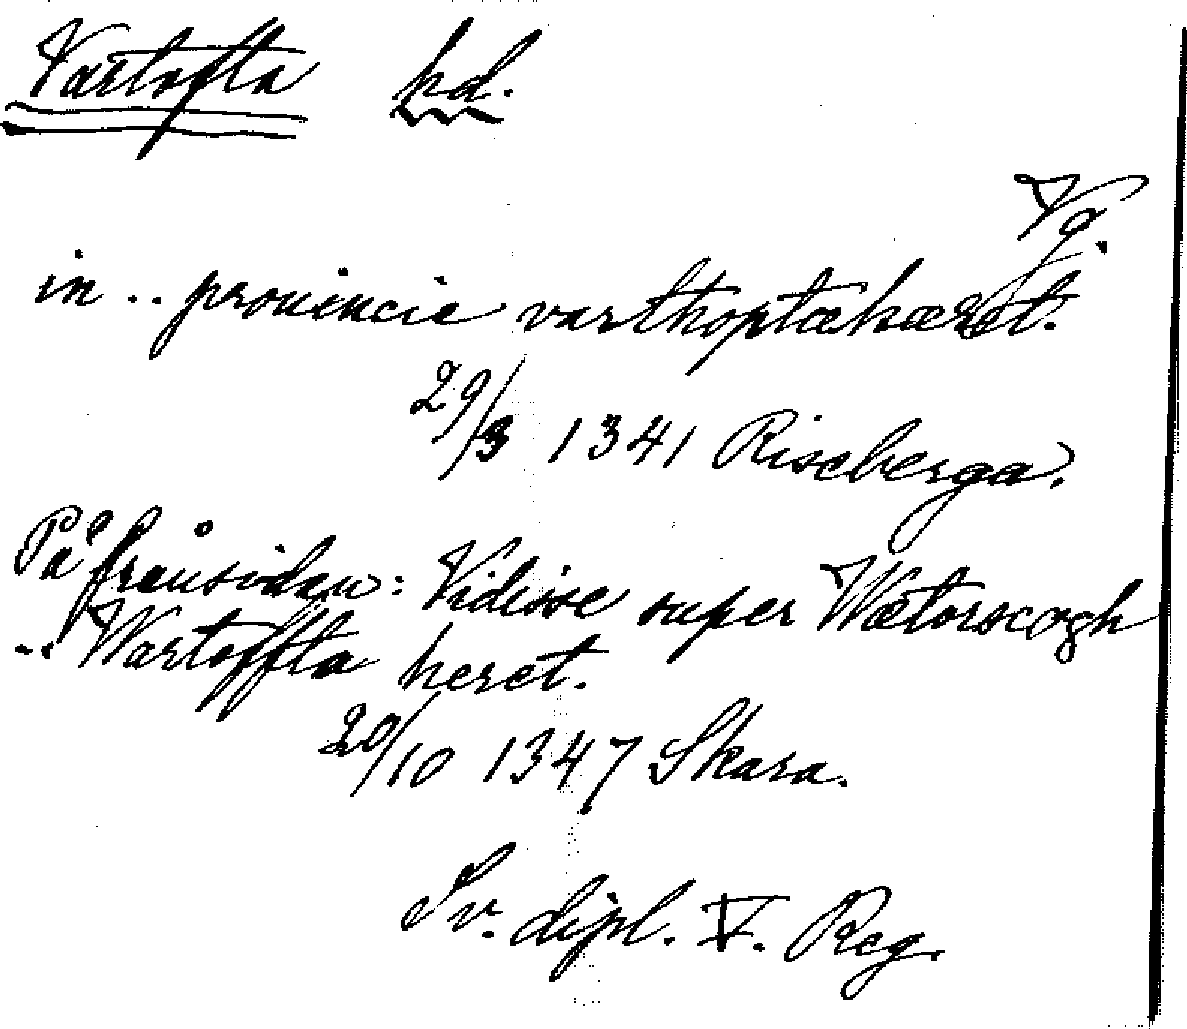 Vartofta hd.
Vg.
in .. prouincie varthoptæhæret.
29/3 1341 Riseberga.
På frånsidan: Vidisse super Wætorscogh
.. Wartoffta heret.
20/10 1347 Skara.
Sv. dipl. V. Reg.